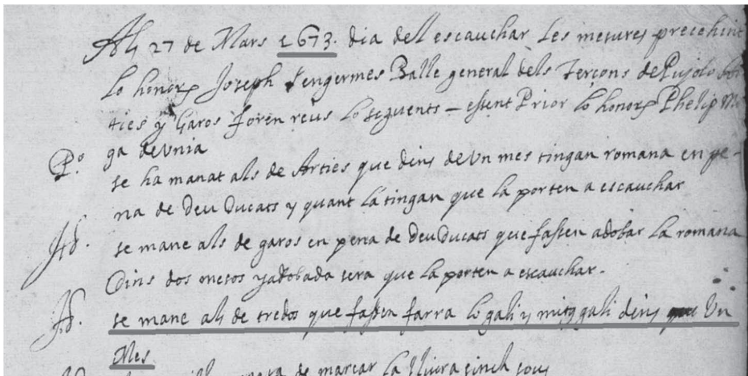 Als 27 de Mars 1673. dia del escauchar les mesures precehint
lo honor Joseph Sengermes Balle general dels Tercons de Pujolo
ties y Garos foren reus los seguents – essent Prior lo honor Phelip
ga de Unia
Po. se ha manat als de Arties que dins de Un mes tingan romana en pe-
na de Deu Ducats y quant la tingan que la porten a escauchar
Itt. se mane als de garos en pena de deu Ducats que fassen adobar la romana
Dins dos mesos y adobada sera que la porten a escauchar.
Itt. se mane als de tredos que fassen farra lo gali y mitg gali dins Un
Mes
de marcar la lliura sinch sous